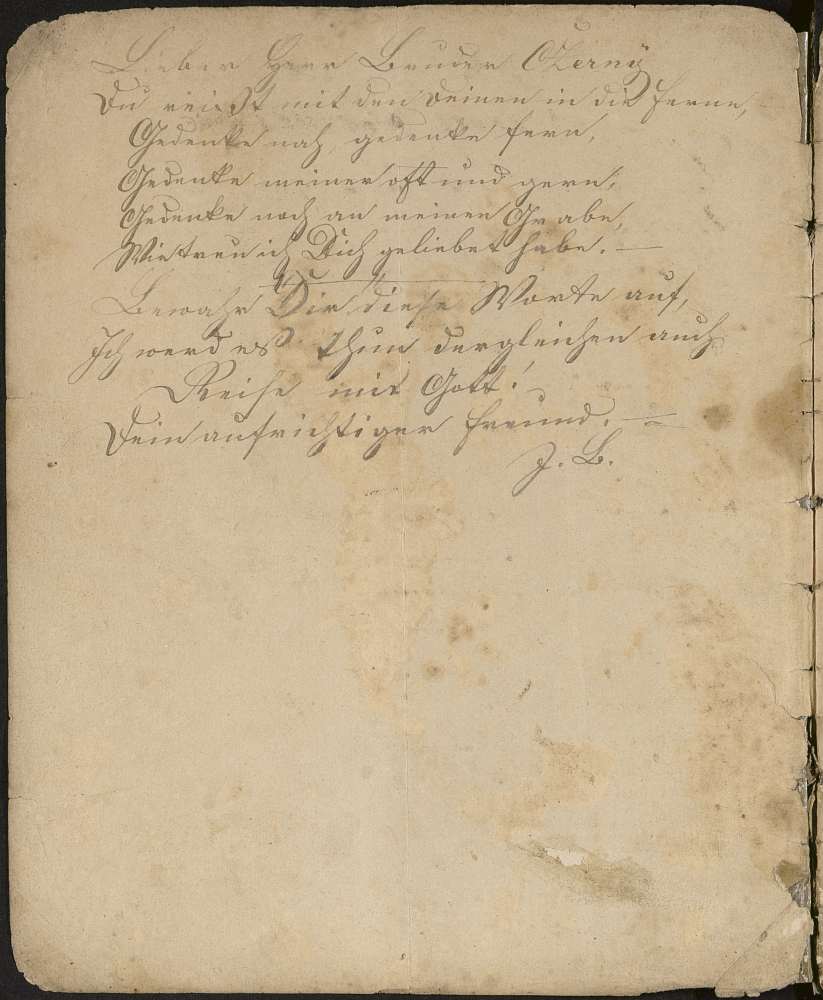 Lieber Herr Bruder CZerný
Du reisst mit den deinen in die ferne,
Gedenke nah, gedenke fern,
Gedenke meiner oft und gern,
Gedenke noch an meinen Grabe,
Wie treu ich Dich geliebet habe. —
Bewahr Dir diese Worte auf,
Ich werd es thun dergleichen auch
Reise mit Gott!
Dein aufrichtiger freund. —
J. B.